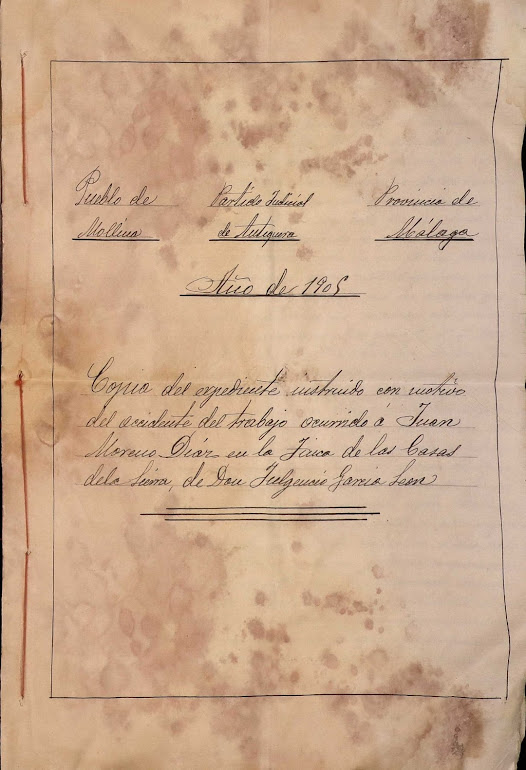 Pueblo de Partido Judicial Provincia de
Mollina de Antequera Málaga
Año de 1905
Copia del expediente instruido con motivo
del accidente del trabajo ocurrido á Juan
Moreno Diáz en la Finca de las Casas
dela Sierra, de Don Fulgencio Garcia Leon